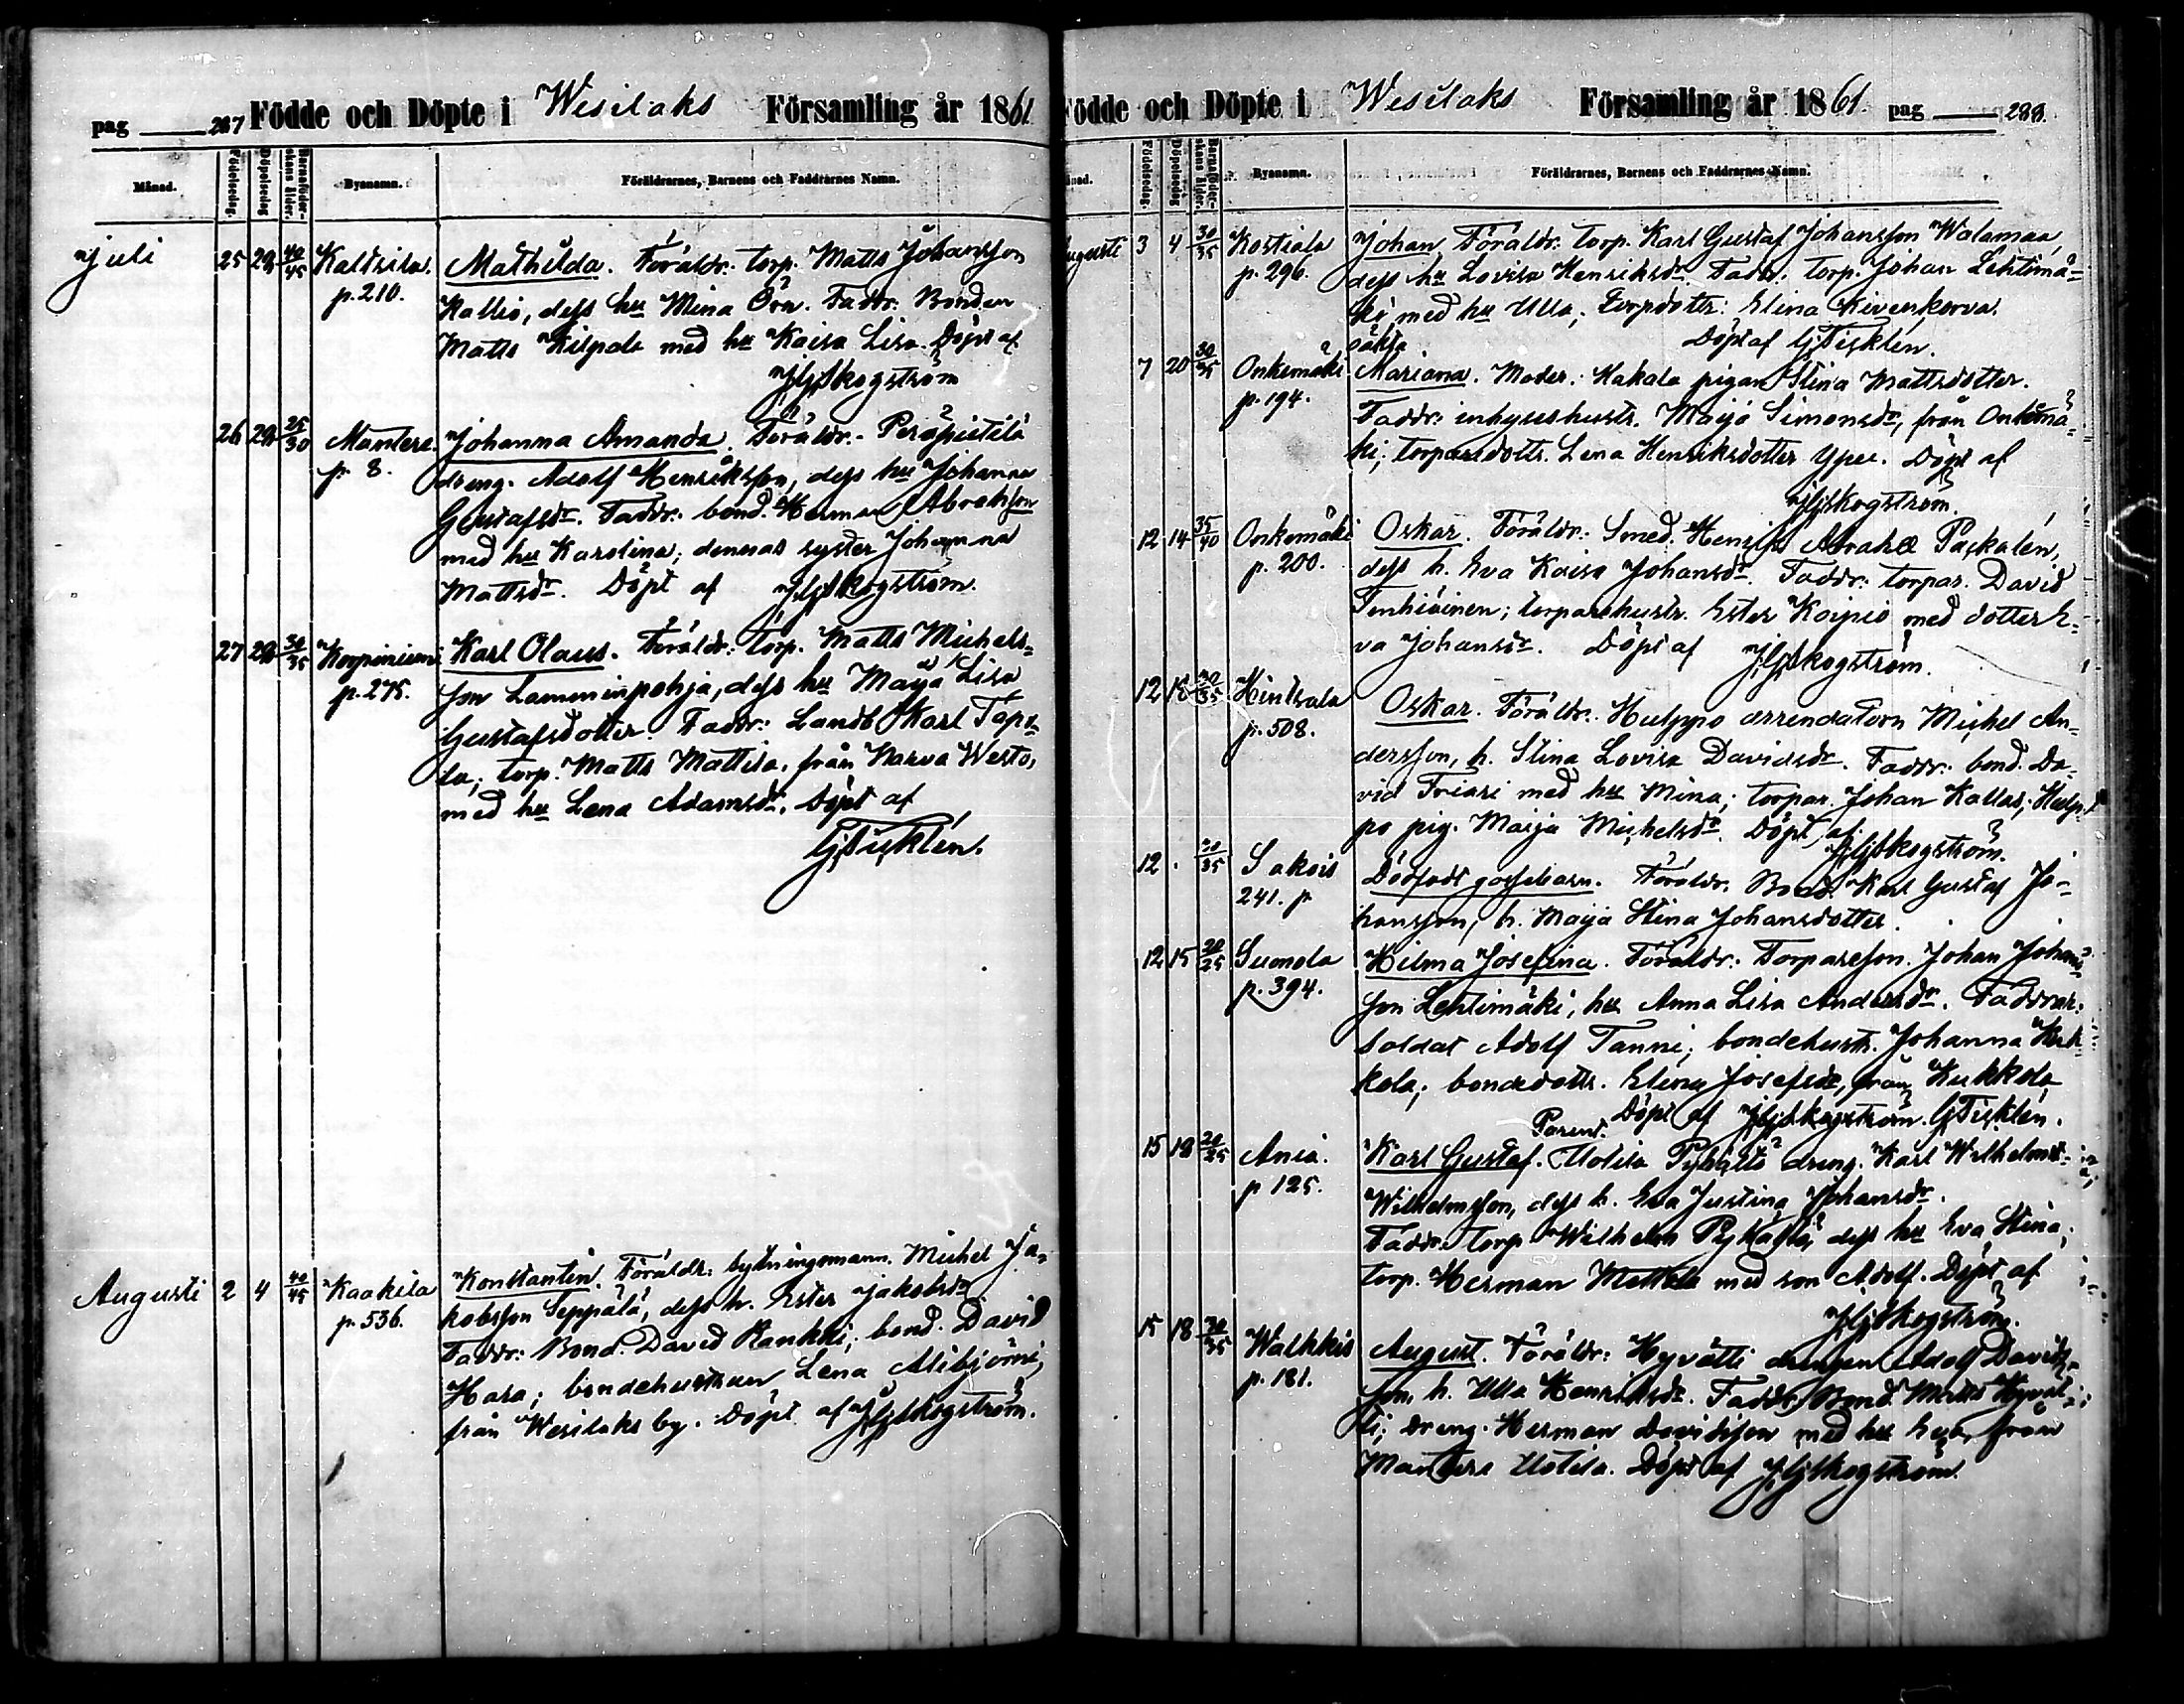 pag 287 Födde och Döpte i Wesilaks Församling år 1861
Månad. Födelsedag. Döpelsedag Barnaföderskans ålder. Byanamn. Föräldrarnes, Barnens och Faddrarnes Namn.
Juli 25 29 40/45 Kaltsila. Mathilda. Föräldr: torp. Matts Johansson
p. 210. Kallio, dess hu Mina Örn. Faddr: Bonden
Matts Kilpala med hu Kaisa Lisa. Döpt af
JGSkogström
26 29 25/30 Mantere Johanna Amanda. Föräldr:
p. 8. dräng. Adolf Henriksson, dess hu Johanna
Gustafsdr. Faddr: bond. Herman Abrahsson
med hu Karolina; dennas syster Johanna
Mattsdr. Döpt af JGSkogström.
27 29 30/35 Korpiniemi Karl Olaus. Föräldr: torp. Matts Michels-
p. 275. son Lamminpohja, dess hu Maija Lisa
Gustafsdotter. Faddr: Landb Karl Tapo-
la; torp. Matts Mattila, från Narva Westo,
med hu Lena Adamsdr. Döpt af
GTicklén.
Augusti 2 4 40/45 Kaakila Konstantin. Föräldr: sytningsmann. Michel Ja-
p. 536. kobsson Seppälä, dess h. Ester Jakobsdr
Faddr: Bond. David Rankki; bond. David
Hara; bondehustrun Lena Alibjörni,
från Wesilaks by. Döpt af JGSkogström.
Födde och Döpte i Wesilaks Församling år 1861 pag 288.
Månad. Födelsedag. Döpelsedag Barnaföderskans ålder. Byanamn. Föräldrarnes, Barnens och Faddrarnes Namn.
Augusti 3 4 30/35 Kostiala Johan. Föräldr. torp. Karl Gustaf Johansson Walamaa,
p. 296. dess hu Lovisa Henriksdr. Faddr: torp. Johan Lehtimä-
ki med hu Ulla; torpdottr: Elina Kivenkorva.
oäkta Döpt af GTicklén.
7 20 30/35 Onkemäki Mariana. Moder: Hakala pigan Stina Mattsdotter.
p. 194. Faddr: inhyseshustr. Maija Simonsdr, från Onkemä-
ki; torparedottr. Lena Henriksdotter Ypee. Döpt af
JGSkogström.
12 14 35/40 Onkemäki Oskar. Föräldr: Smed. Henrik Abrah Paskalén,
p. 200. dess h. Eva Kaisa Johansdr. Faddr: torpar. David
Tenhiäinen; torparehustr. Ester Koipio med dotter E-
va Johansdr. Döpt af JGSkogström.
12 15 30/35 Hinsala Oskar. Föräldr: Hulppo arrendatorn Michel An-
p. 508. dersson, h. Stina Lovisa Davidsdr. Faddr: bond. Da-
vid Friari med hu Mina; torpar. Johan Kallas; Hulp-
po pig. Maija Michelsdr. Döpt af JGSkogström.
12 35 Sakois Dödfödt gossebarn. Föräldr: Bond. Karl Gustaf Jo-
241. p hansson, h. Maija Stina Johansdotter.
12 15 20/25 Suomela Hilma Josefina. Föräldr: Torpareson. Johan Johans-
p. 394. son Lehtimäki, hu Anna Lisa Andersdr. Faddrar:
Soldat Adolf Tanni; bondehustr. Johanna Kuk-
kola; bondedottr. Elina Josefsdr, från Kukkola
Döpt af JGSkogström. GTicklén.
Parent.
15 18 20/25 Ania. Karl Gustaf. Uotila Pyhältö dräng. Karl Wilhelm
p 125. Wilhelmsson, dess h. Eva Justina Johansdr.
Faddr: torp Wilhelm dess hu Eva Stina;
torp. Herman Mattila med son Adolf. Döpt af
JGSkogström.
15 18 30/35 Walkkis August. Föräldr: Hyvätti drängen Adolf Davids-
p. 181. son, h. Ulla Henriksdr. Faddr: Bond. Matts Hyvät-
ti; dräng. Herman Davidsson med hu Eva, från
Mantere Uotila. Döpt af JGSkogström.